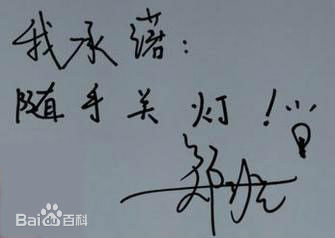 我承诺：
随手关灯！
郑
Bai百科